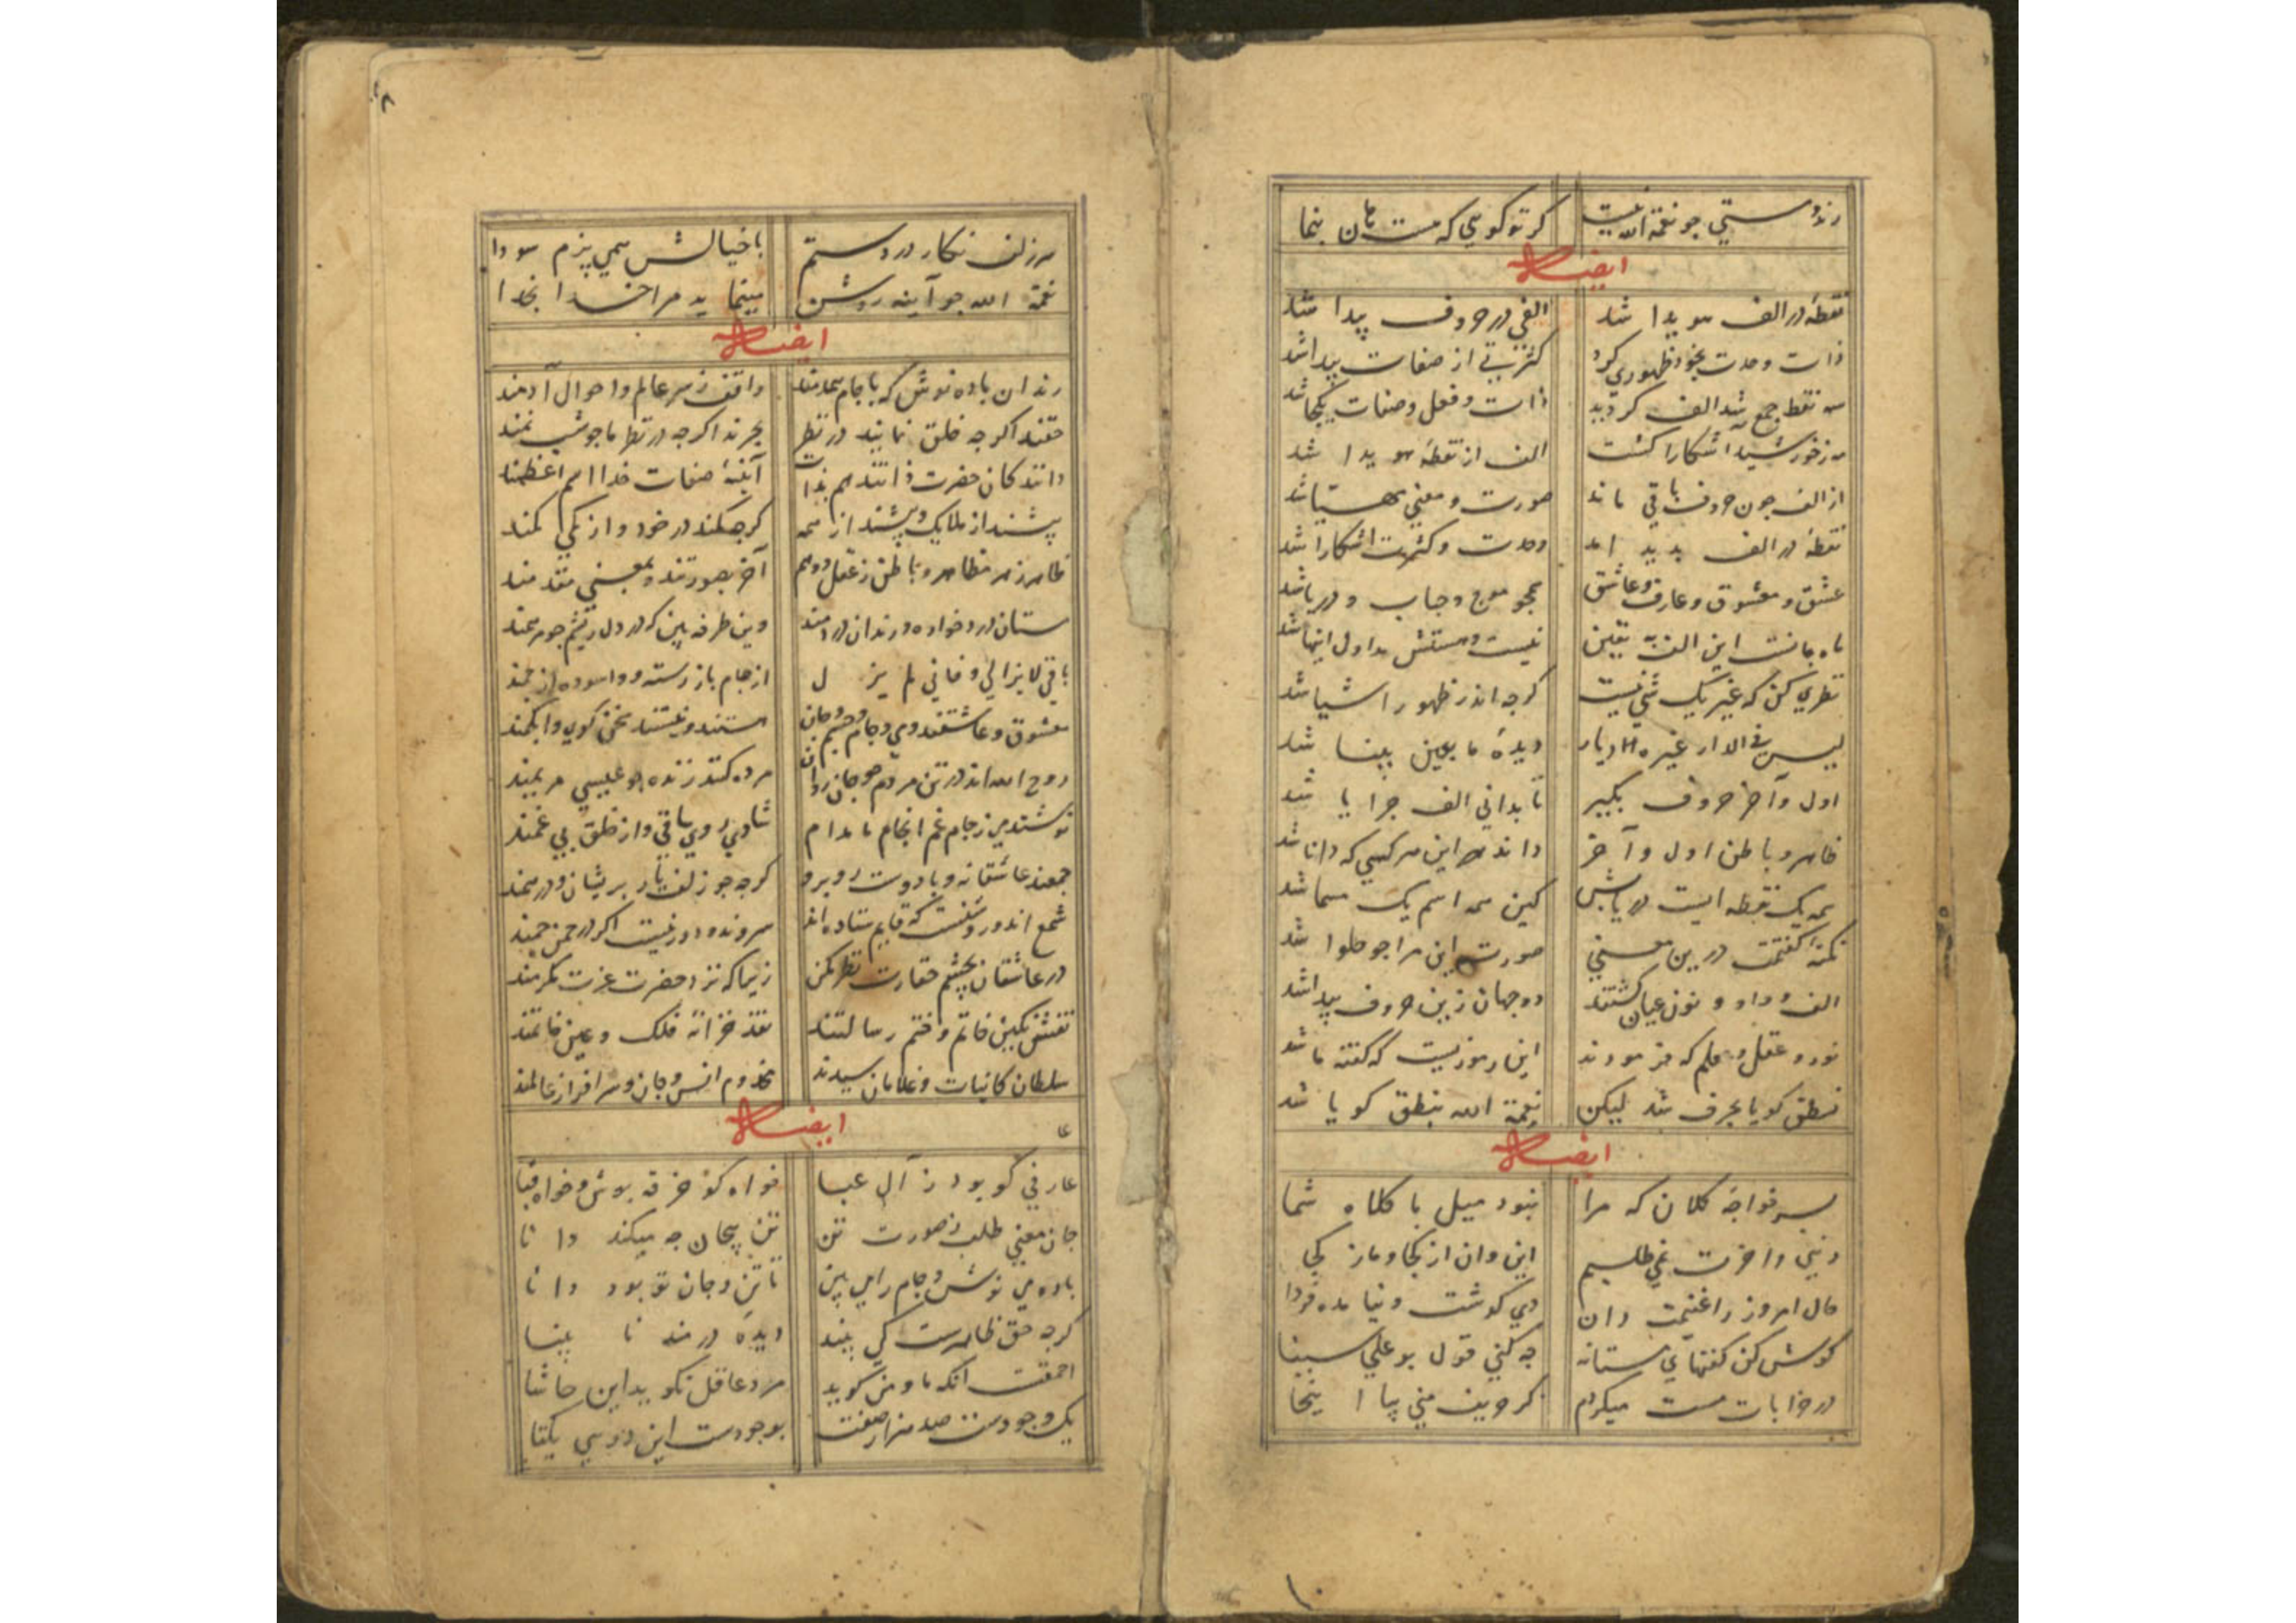 رند و مستی چو نعمة الله نیست کر تو کویی که هست هان بنما
ایضاً له
نقطهٔ در الف هویدا شد الفی در حروف پیدا شد
ذات وحدت بخود ظهوری کرد کثرتی از صفات پیدا شد
سه نقط جمع شد الف کردید ذات و فعل و صفات یکجا شد
مه ز خورشید آشکارا کشت الف از نقطهٔ هویدا شد
از الف چون حروف باقی ماند صورت و معنی
نقطهٔ در الف پدید امد وحدت و کثرت اشکارا شد
عشق و معشوق و عارف و عاشق همچو موج و حباب و دریا شد
این الف یقین نیست
نظری کن که غیر یک شی نیست کرچه اندر ظهور اشیا شد
لیس فی الدار غیره دیار دیدهٔ ما بعین بینا شد
اول و آخر حروف بکیر تا بدانی الف چرا با شد
ظاهر و باطن اول و آخر داند این هر کسی که دانا شد
همه یک نقطه ایست دریابش کین همه اسم یک مسما شد
نکتهٔ کفتمت درین معنی صورت این مرا چو حلوا شد
الف و واو و نون عیان کشتند دو جهان زین حروف پیدا شد
نور و عقل و علم که فرمودند این رموزیست که کفته ما شد
نطق کویا بحرف شد لیکن نعمة الله بنطق کویا شد
ایضاً له
پسر خواجهٔ کلان که مرا نبود میل با کلاه شما
دنیی و اخرت نمی طلبیم این و ان از کجا و ما ز کجا
حال امروز را غنیمت دان دی کذشت و نیامده فردا
کوش کن کفتهای مستانه چه کنی قول بو علی سینا
در خرابات مست میکردم کر حریف منی بیا اینجا
سر زلف نکار در دستم با خیالش همی پزم سودا
نعمة الله چو آینه روشن مینماید مرا خدا بخدا
ایضاً له
رندان باده نوش که با جام همدمند واقف ز سر عالم و احوال آدمند
حقند اکرچه خلق نمایند در نظر بحرند اکرچه در نظر ما چو شبنمند
دانند کان حضرت ذاتند هم بذات آینهٔ صفات خدا اسم اعظمند
پیشند از ملایک و پیشند از همه کرچه کمند در خود و از یکی کمند
ظاهر ز هر مظاهر و باطن ز عقل و وهم آخر بصورتند و بمعنی مقدمند
مستان دردخواره و رندان دردمند وین طرفه بین که در دل ریشم چو مرهمند
باقی لایزالی و فانی لم یزل از جام باز رسته و اسوده از جمند
معشوق و عاشقند و می و جام و جسم و جان مستند و نیستند سخن کوی و ابکمند
روح الله اند در تن مردم چو جان روان مرده کنند زنده چو عیسی مریمند
نوشند می ز جام غم انجام ما مدام شادی روی ساقی و از خلق بی غمند
جمعند عاشقانه و با دوست روبرو کرچه چو زلف یار پریشان و درهمند
شمع اند و روشنست که قایم ستاده اند سروند و دور نیست اکر در چمن چمند
در عاشقان بچشم حقارت نظر مکن زیرا که نزد حضرت عزت مکرمند
نقش نکین خاتم و ختم رسالتند نقد خزانه فلک و عین خاتمند
سلطان کاینات و غلامان سیدند مخدوم انس و جان و سرافراز عالمند
ایضاً له
عارفی کو بود ز آل عبا خواه کو خرقه پوش و خواه قبا
جان معنی طلب نه صورت تن تن بیجان چه میکند دانا
باده می نوش و جام را می بین تا تن و جان تو بود دانا
کرچه حق ظاهرست کی بیند دیدهٔ دردمند نا بینا
احمقست انکه ما و من کوید مرد عاقل نکوید این حاشا
یک وجودست صد هزار صفت بوجودست این دویی یکتا